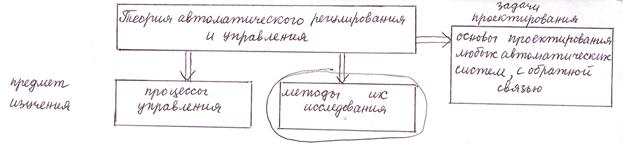 задачи
проектирования
Теория автоматического регулирования
и управления
основы проектирования
любых автоматических
систем, с обратной
связью
предмет
изучения
процессы
управления
методы их
исследования